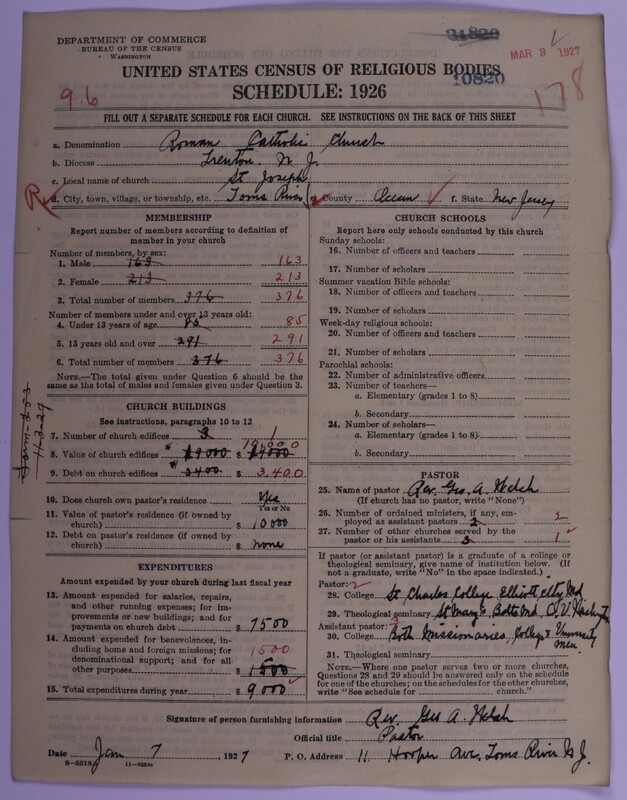 DEPARTMENT OF COMMERCE
BUREAU OF THE CENSUS
WASHINGTON
31820
MAR 3 1927
UNITED STATES CENSUS OF RELIGIOUS BODIES
10820
SCHEDULE: 1926
96
178
FILL OUT A SEPARATE SCHEDULE FOR EACH CHURCH. SEE INSTRUCTIONS ON THE BACK OF THIS SHEET
a. Denomination Roman Catholic Church
b. Diocese Trenton N. J.
c. Local name of church St Joseph
R
d. City, town, village, or township, etc. Toms River e. County Ocean f. State New Jersey
MEMBERSHIP
Report number of members according to definition of member in your church
Number of members, by sex:
1. Male 163 163
2. Female 213 213
3. Total number of members 376 376
Number of members under and over 13 years old:
4. Under 13 years of age 85 85
5. 13 years old and over 291 291
6. Total number of members 376 376
NOTE.—The total given under Question 6 should be the
same as the total of males and females given under Question 3.
CHURCH BUILDINGS
See instructions, paragraphs 10 to 12
7. Number of church edifices 3 1
8. Value of church edifices $ 19000 19,000
9. Debt on church edifices 3400 $ 3,400
10. Does church own pastor's residence Yes
Yes or No
11. Value of pastor's residence (if owned by
church) $ 10000
12. Debt on pastor's residence (if owned by
church) $ none
EXPENDITURES
Amount expended by your church during last fiscal year
13. Amount expended for salaries, repairs,
and other running expenses; for im-
provements or new buildings; and for
payments on church debt $ 7500
14. Amount expended for benevolences,
including home and foreign missions; for
denominational support; and for all
other purposes $ 1500 1500
15. Total expenditures during year $ 9000
CHURCH SCHOOLS
Report here only schools conducted by this church
Sunday schools:
16. Number of officers and teachers
17. Number of scholars
Summer vacation Bible schools:
18. Number of officers and teachers
19. Number of scholars
Week-day religious schools:
20. Number of officers and teachers
21. Number of scholars
Parochial schools:
22. Number of administrative officers
23. Number of teachers—
a. Elementary (grades 1 to 8)
b. Secondary
24. Number of scholars—
a. Elementary (grades 1 to 8)
b. Secondary
PASTOR
25. Name of pastor Rev. Geo. A. Welsh
(If church has no pastor, write "None")
26. Number of ordained ministers, if any, em-
ployed as assistant pastors 2 2
27. Number of other churches served by the
pastor or his assistants 3 1
If pastor (or assistant pastor) is a graduate of a college or
theological seminary, give name of institution below. (If
not a graduate, write "No" in the space indicated.)
Pastor: 2
28. College St Charles College Ellicott City Md
29. Theological seminary St Mary's Balto Md. C. U. Washington
Assistant pastor: 3
30. College Both Missionaries, College & University men
31. Theological seminary
NOTE.—Where one pastor serves two or more churches,
Questions 28 and 29 should be answered only on the schedule
for one of the churches; on the schedules for the other churches,
write "See schedule for church."
Signature of person furnishing information Rev. Geo A. Welsh
Official title Pastor
Date Jan 7, 1927 P. O. Address 11 Hooper Ave. Toms River N J.